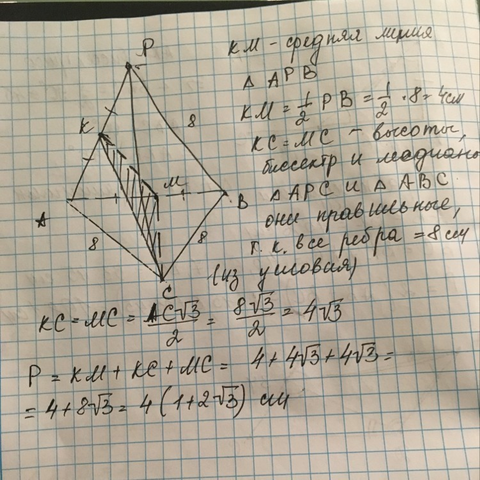 KM - средняя линия
△ APB
KM = 1/2 PB = 1/2 · 8 = 4 см
KC = MC - высоты,
биссектр и медианы
△ APC и △ ABC
они правильные,
т. к. все ребра = 8 см
(из условия)
P
K
8
M
A
B
8
8
C
KC = MC = AC√3/2 = 8√3/2 = 4√3
P = KM + KC + MC = 4 + 4√3 + 4√3 =
= 4 + 8√3 = 4 (1 + 2√3) см